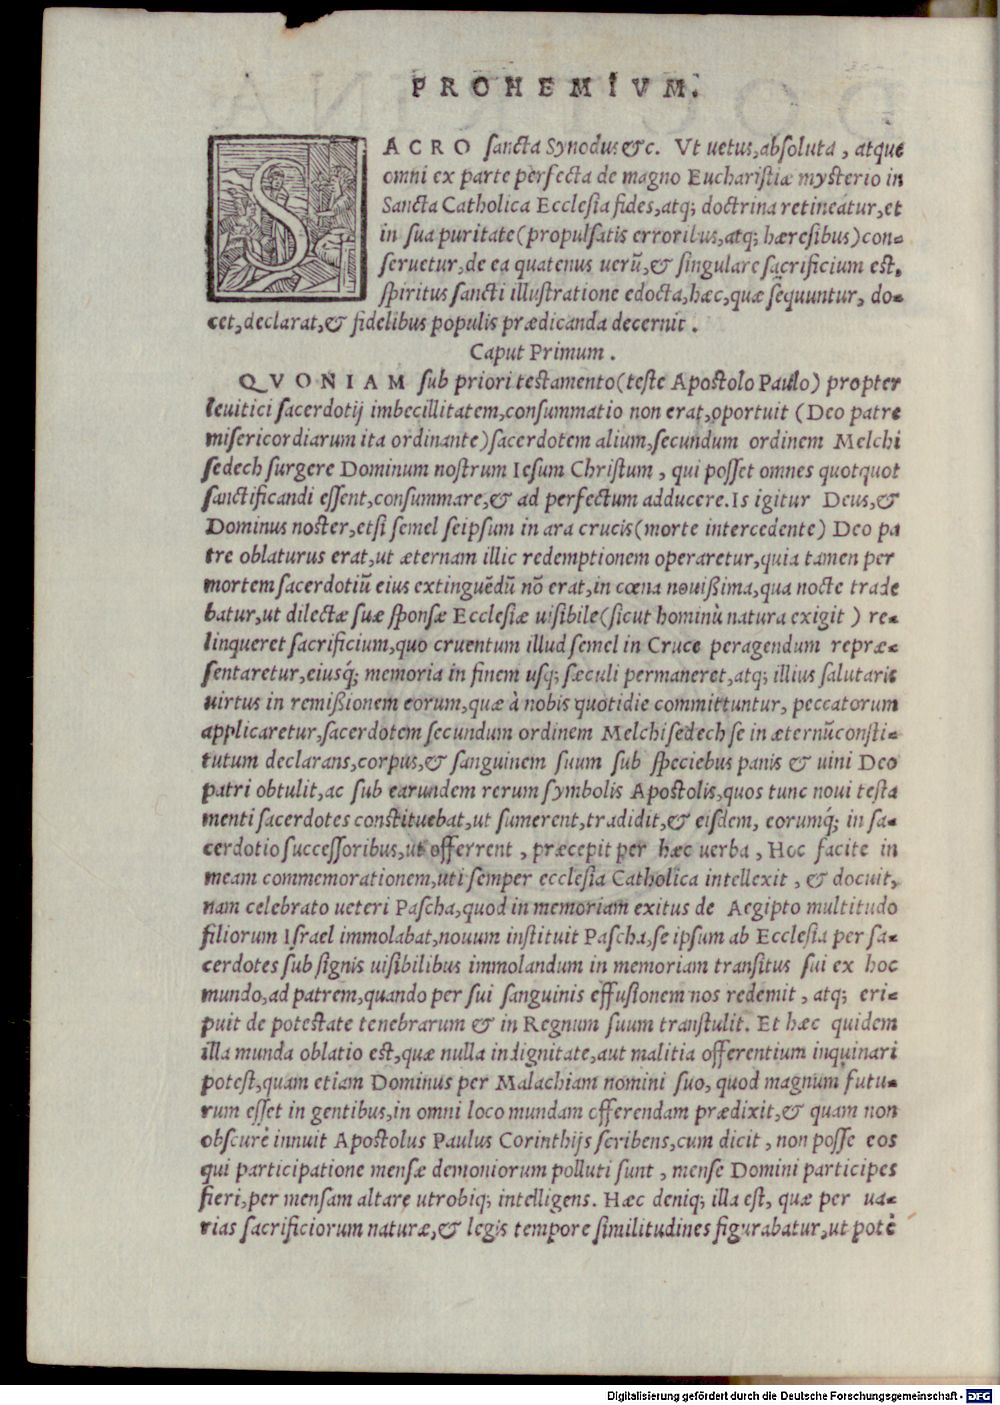 PROHEMIVM.
SACRO sancta Synodus &c. Vt uetus, absoluta, atque
omni ex parte perfecta de magno Eucharistiæ mysterio in
Sancta Catholica Ecclesia fides, atq; doctrina retineatur, et
in sua puritate (propulsatis erroribus, atq; hæresibus) con-
seruetur, de ea quatenus uerũ, & singulare sacrificium est,
spiritus sancti illustratione edocta, hæc, quæ sequuntur, do-
cet, declarat, & fidelibus populis prædicanda decernit.
Caput Primum.
QVONIAM sub priori testamento (teste Apostolo Paulo) propter
leuitici sacerdotij imbecillitatem, consummatio non erat, oportuit (Deo patre
misericordiarum ita ordinante) sacerdotem alium, secundum ordinem Melchi
sedech surgere Dominum nostrum Iesum Christum, qui posset omnes quotquot
sanctificandi essent, consummare, & ad perfectum adducere. Is igitur Deus, &
Dominus noster, etsi semel seipsum in ara crucis (morte intercedente) Deo pa
tre oblaturus erat, ut æternam illic redemptionem operaretur, quia tamen per
mortem sacerdotiũ eius extinguẽdũ nõ erat, in cœna nouißima, qua nocte trade
batur, ut dilectæ suæ sponsæ Ecclesiæ uisibile (sicut hominũ natura exigit) re-
linqueret sacrificium, quo cruentum illud semel in Cruce peragendum repræ-
sentaretur, eiusq́; memoria in finem usq; sæculi permaneret, atq; illius salutaris
uirtus in remißionem eorum, quæ à nobis quotidie committuntur, peccatorum
applicaretur, sacerdotem secundum ordinem Melchisedech se in æternũ consti-
tutum declarans, corpus, & sanguinem suum sub speciebus panis & uini Deo
patri obtulit, ac sub earundem rerum symbolis Apostolis, quos tunc noui testa
menti sacerdotes constituebat, ut sumerent, tradidit, & eisdem, eorumq́; in sa-
cerdotio successoribus, ut offerrent, præcepit per hæc uerba, Hoc facite in
meam commemorationem, uti semper ecclesia Catholica intellexit, & docuit,
nam celebrato ueteri Pascha, quod in memoriam exitus de Aegipto multitudo
filiorum Israel immolabat, nouum instituit Pascha, se ipsum ab Ecclesia per sa-
cerdotes sub signis uisibilibus immolandum in memoriam transitus sui ex hoc
mundo, ad patrem, quando per sui sanguinis effusionem nos redemit, atq; eri-
puit de potestate tenebrarum & in Regnum suum transtulit. Et hæc quidem
illa munda oblatio est, quæ nulla indignitate, aut malitia offerentium inquinari
potest, quam etiam Dominus per Malachiam nomini suo, quod magnum futu-
rum esset in gentibus, in omni loco mundam offerendam prædixit, & quam non
obscurè innuit Apostolus Paulus Corinthijs scribens, cum dicit, non posse eos
qui participatione mensæ demoniorum polluti sunt, mense Domini participes
fieri, per mensam altare utrobiq; intelligens. Hæc deniq; illa est, quæ per ua-
rias sacrificiorum naturæ, & legis tempore similitudines figurabatur, ut potè
Digitalisierung gefördert durch die Deutsche Forschungsgemeinschaft - DFG